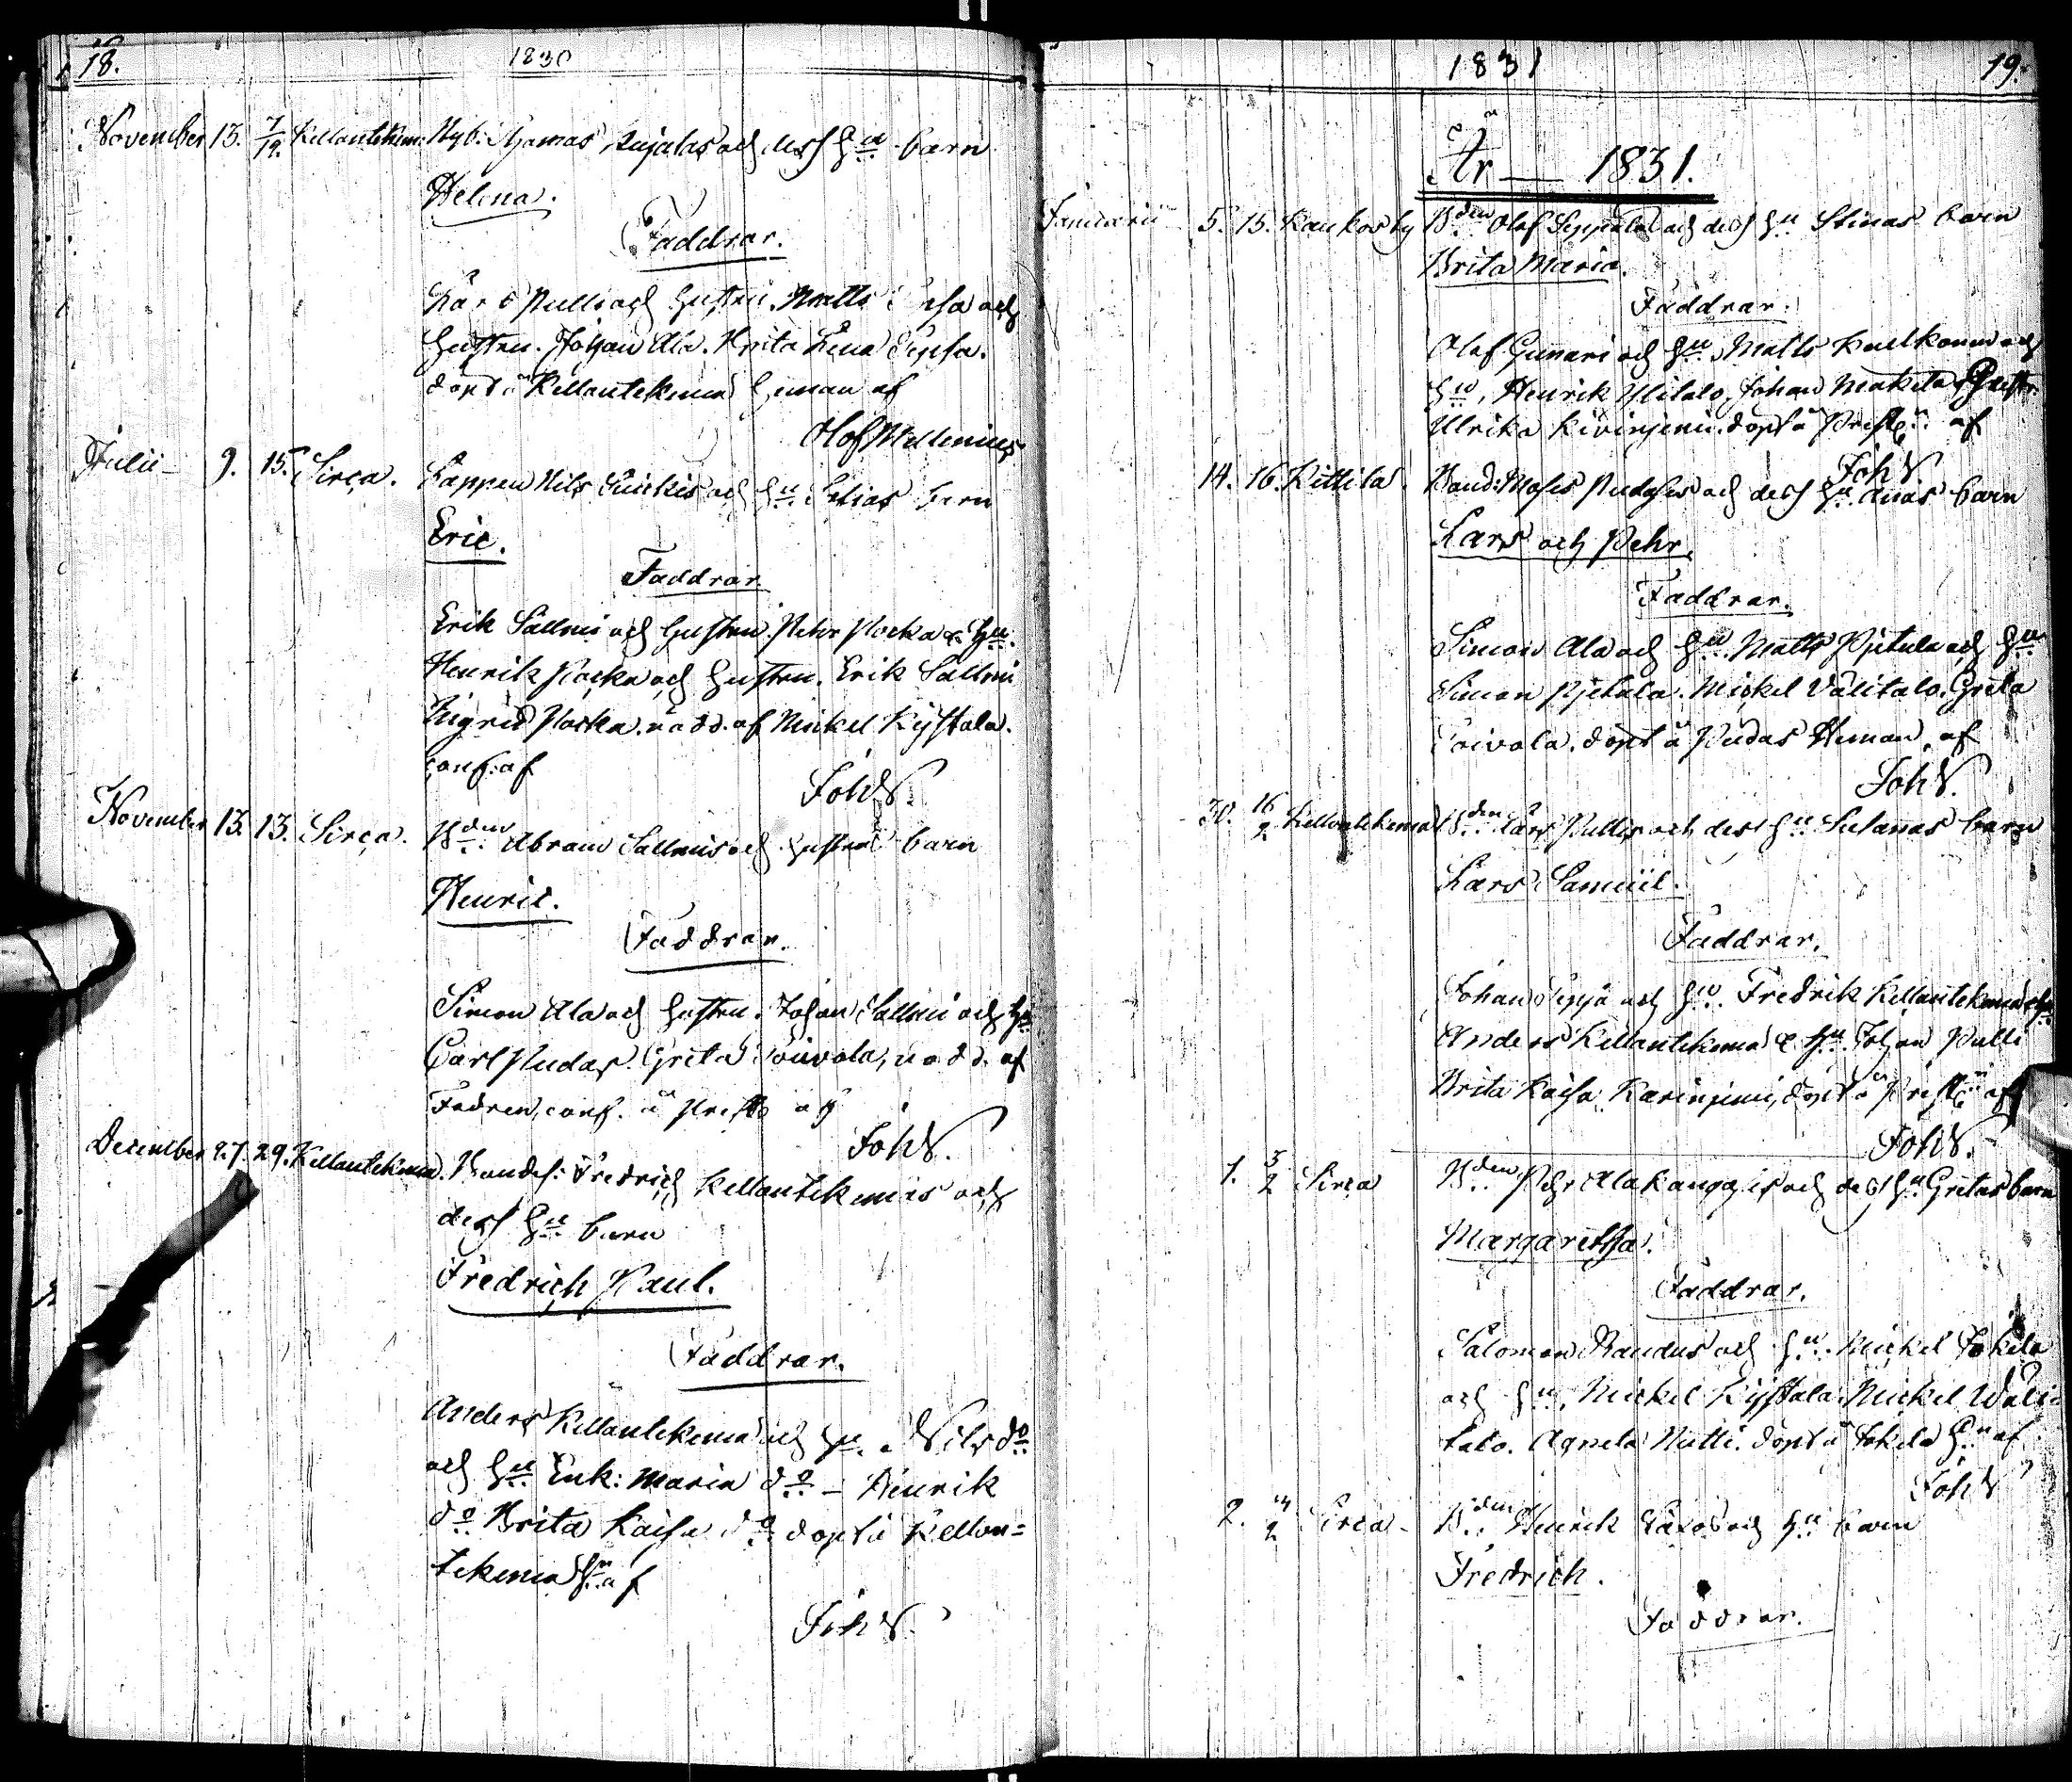 18. 1830
November 13. 7/12. Kellontekem: Nyb: Thomas Kujalas och dess Hu barn
Helena.
Faddrar.
Lars Pulli och Hustru. Matts och
Hustru. Johan Ala. Brita Lena
döpt å Kellontekema Heman af
Olof Mellenius
Julii 9. 15. Sirca. Lappen Nils och Hu barn
Eric.
Faddrar.
Erik Sallmi och Hustru. Pehr Pocka & Hu.
Henrik Pocka och Hustru. Erik Sallmi
Ingrid Pocka. nödd. af Mickel Kystala.
conf. af
Joh W.
November 13. 13. Sirca. Bden Abram Sallmis och Hustrus barn
Henric.
Faddrar.
Simon Ala och Hustru. Johan Sallmi och Hu
Carl Pudas. Greta Toivola, nödd. af
Fadren, conf. å Prestg af
Joh W.
December 27. 29. Kellontekema. Bondes: Fredrich Kellontekemis och
dess Hu barn
Fredrich Paul.
Faddrar.
Anders Kellontekema och Hu. Nils do
och Hu Enk: Maria do – Henrik
do Brita Kaisa do döpt å Kellon=
tekema Hn af
Joh W.
1831 19.
År — 1831.
Januarii 5. 15. Kaukosby Bden Olof Seppälas och dess Hu Stinas barn
Brita Maria.
Faddrar.
Olof Gunnari och Hu, Matts och
Hu, Henrik Ylitalo, Johan Makela
Ulrika Kivinjemi. döpt å Prestg. af
Joh W.
14. 16. Kittila. Bond: Moses Pudases och dess Hu Anas barn
Lars och Pehr.
Faddrar.
Simon Ala och Hu. Matts Pjetula och Hu
Simon Pjetula. Mickel Välitalo. Greta
Toivola. döpt å Pudas Heman, af
Joh W.
30. 16/2 Kellontekema Bden Lars Pullis och dess Hu Susanas barn
Lars Samuil.
Faddrar.
Johan och Hu. Fredrik Kellontekema och Hu
Anders Kellontekema & Hu. Johan Pulli
Brita Kaisa döpt å Prestg af
Joh W.
1. 3/2 Sirca Bden Pehr Alakangas och dess Hu Gretas barn
Margaretha.
Faddrar.
Salomon Raudus och Hu. Mickel Jokela
och Hu, Mickel Kystala. Mickel Wäli=
talo. Agneta Nutti. döpt å Jokela Hn af
Joh W
2. 14/2 Sirca Bden Henrik och Hu barn
Fredrich.
Faddrar.